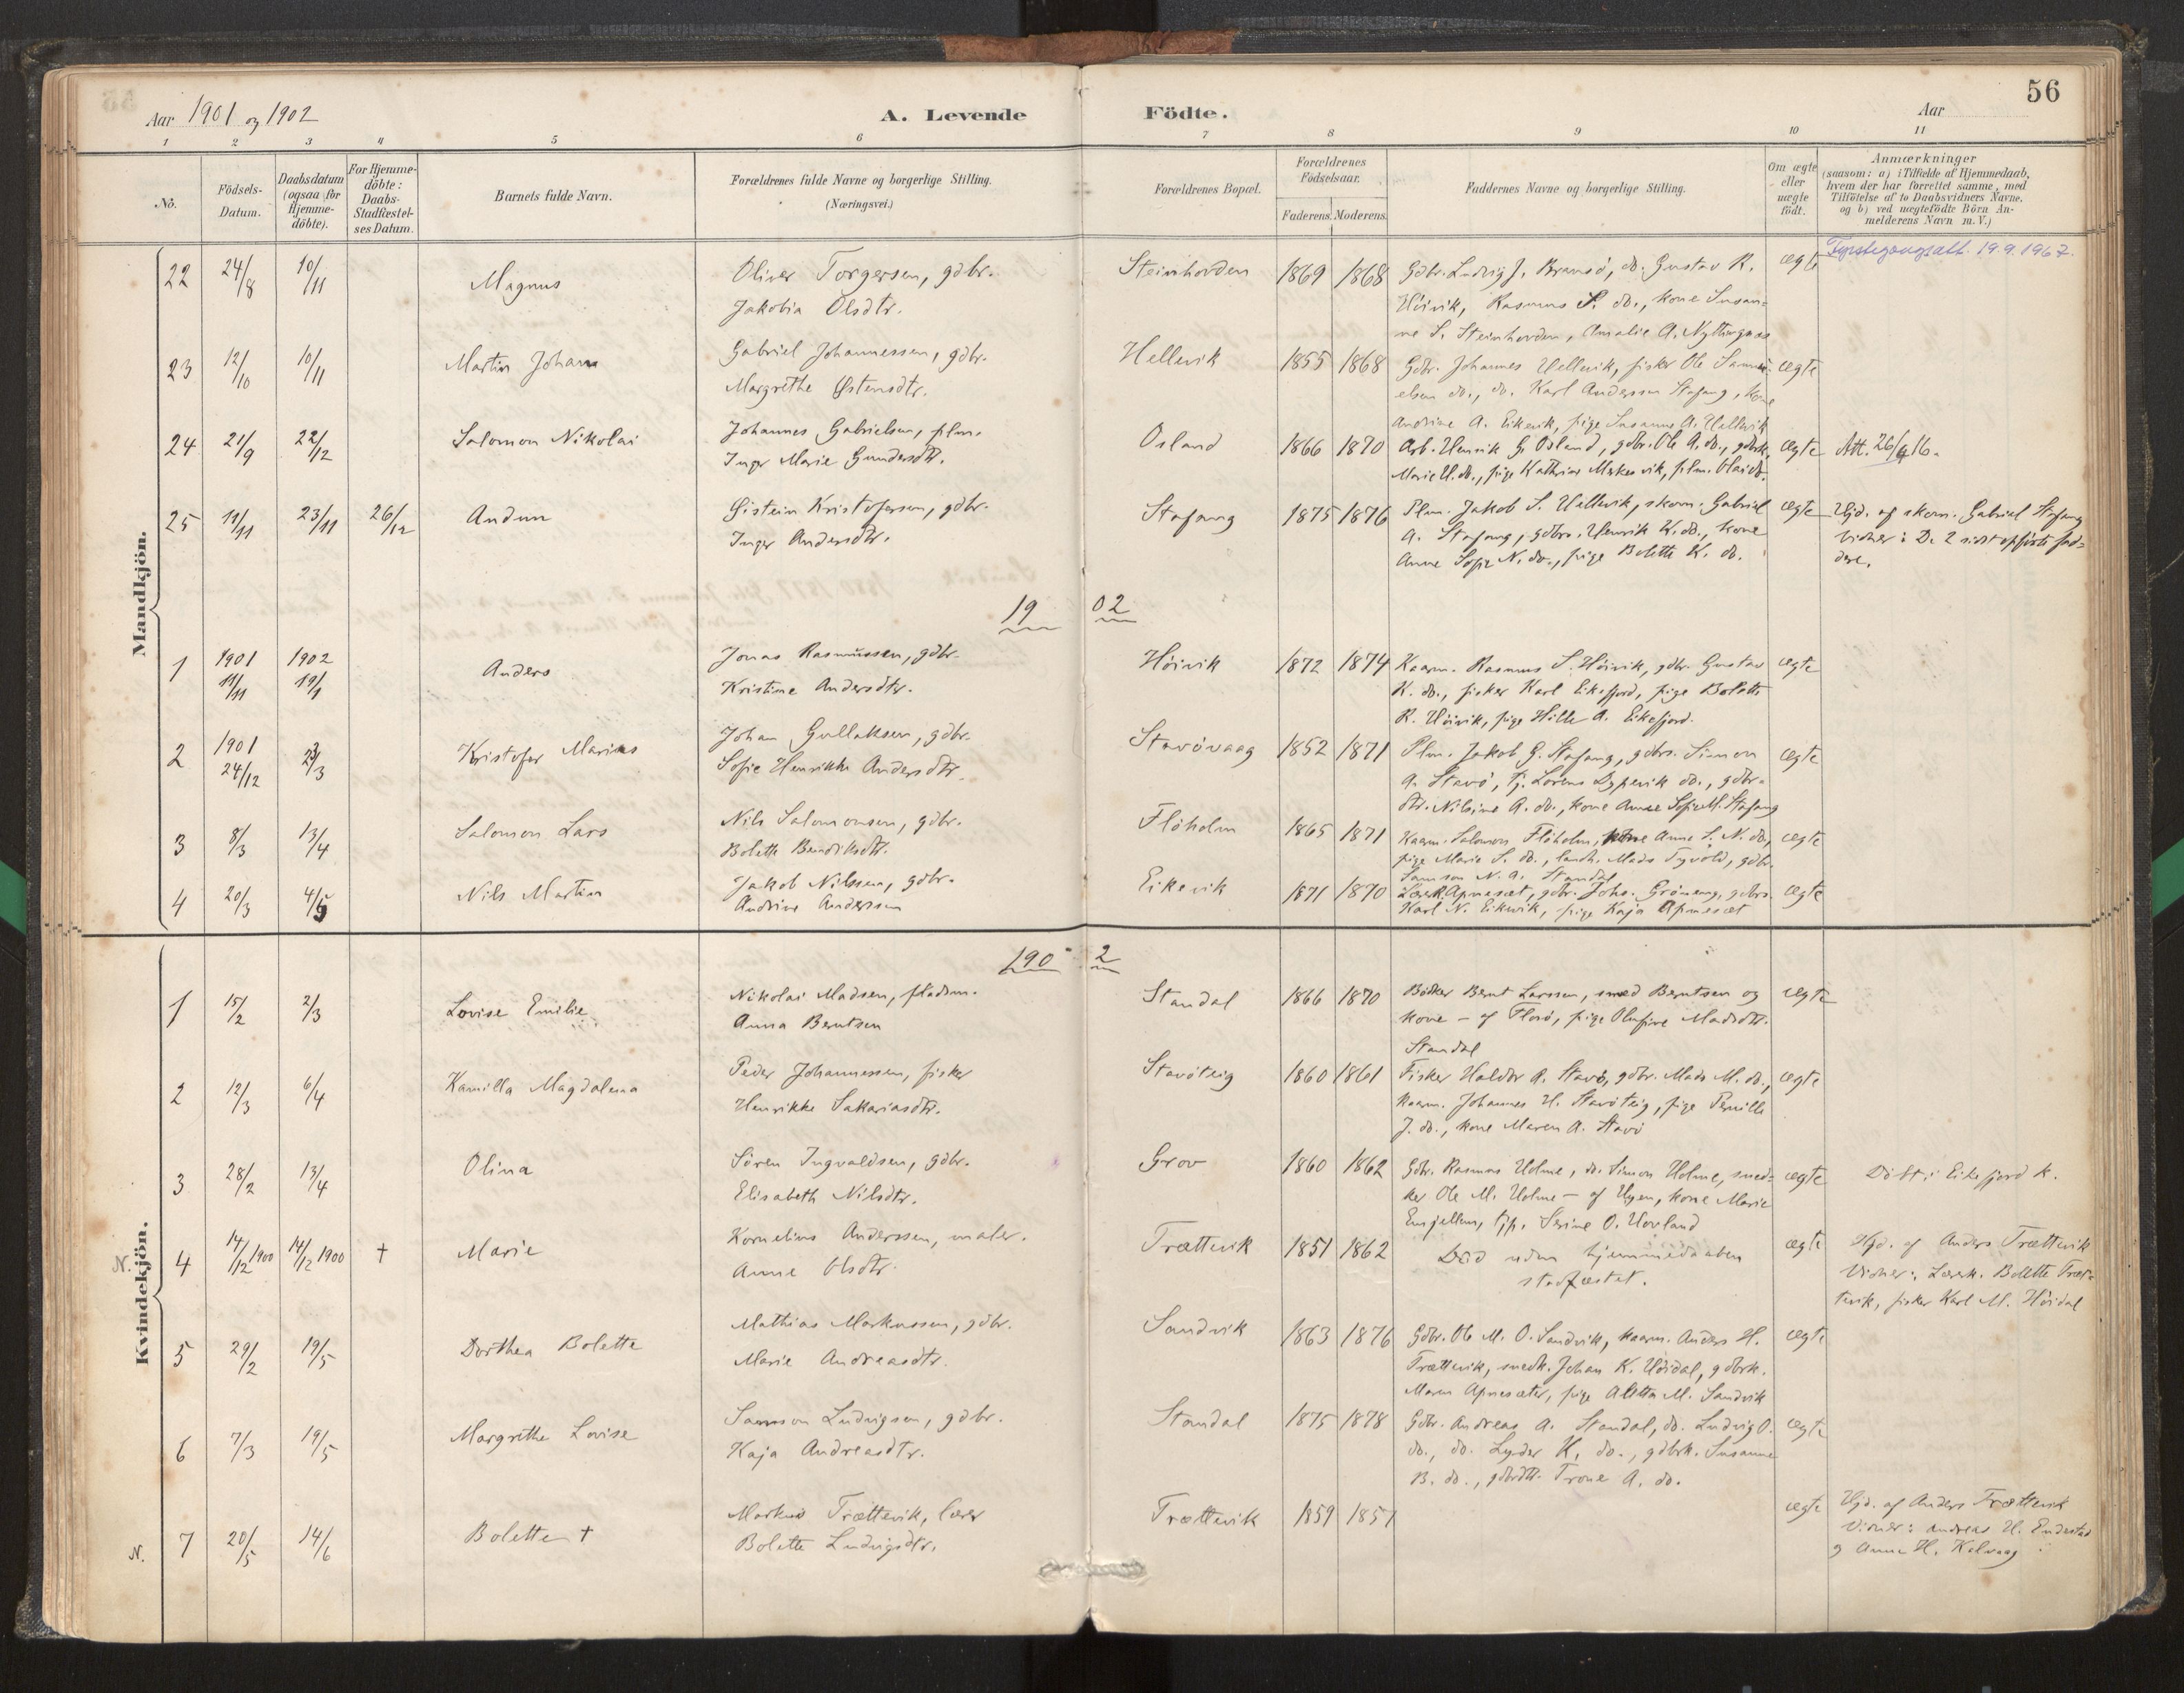 56
Aar 1901 og 1902
A. Levende Födte.
Aar
1 2 3 4 5 6 7 8 9 10 11
No.
Födsels-Datum.
Daabsdatum (ogsaa for Hjemme-döbte).
For Hjemme-döbte: Daabs-Stadfæstel-ses Datum.
Barnets fulde Navn.
Forældrenes fulde Navne og borgerlige Stilling. (Næringsvei.)
Forældrenes Bopæl.
Forældrenes Födselsaar.
Faderens. Moderens.
Faddernes Navne og borgerlige Stilling.
Om ægte eller uægte födt.
Anmærkninger (saasom: a) i Tilfælde af Hjemmedaab, hvem der har forrettet samme, med Tilföielse af to Daabsvidners Navne. og b) ved uægtefödte Börn An-melderens Navn m. V.)
Mandkjön.
22 24/8 10/11 Magnus
Oliver Torgersen, gdbr.
Jakobia Olsdtr.
Steinhovden 1869 1868
Gdbr. Ludvig J. Bransö, do. Gustav R.
Höivik, Rasmus S. do., kone Susan=
ne S. Steinhovden, Amalie A. Nyttingnæs
ægte
Förstegangsatt. 19.9.1967.
23 12/10 10/11 Martin Johan
Gabriel Johannessen, gdbr.
Margrethe Østensdtr.
Hellevik 1855 1868
Gdbr. Johannes Hellevik, fisker Ole Samu-
elsen do., do. Karl Anderssen Stafang, kone
Andrine A. Eikevik, pige Susanne A. Hellevik
ægte
24 21/9 22/12 Salomon Nikolai
Johannes Gabrielsen, plm.
Inger Marie Gundersdtr.
Osland 1866 1870
Arb. Henrik G. Osland, gdbr. Ole A. do., gdbrk.
Marie H. do., pige Kathrine
ægte
Att. 26/9 16.
25 11/11 23/11 26/12 Audun
Øistein Kristofersen, gdbr.
Inger Andersdtr.
Stafang 1875 1876
Plm. Jakob S. Hellevik, skom. Gabriel
A. Stafang, gdbrs. Henrik K. do., kone
Anne Sofie N. do., pige Bolette K. do.
ægte
Hjd. af skom. Gabriel Stafang
Vidner: De 2 sidst opførte fad=
dere.
1902
1 1901 11/11 1902 19/1 Anders
Jonas Rasmussen, gdbr.
Kristine Andersdtr.
Höivik 1872 1874
Kaarm. Rasmus S. Höivik, gdbr. Gustav
K. do., fisker Karl Eikefjord, pige Bolette
R. Höivik, pige Hille A. Eikefjord.
ægte
2 1901 24/12 2/3 Kristofer Marius
Johan Gullaksen, gdbr.
Sofie Henrikke Andersdtr.
Stavövaag 1852 1871
Plm. Jakob G. Stafang, gdbrs. Simon
A. Stavö, tj. Lorens Dypevik do., gdbr-
dtr. Nilsine A. do., kone Anne Sofie M. Stafang
ægte
3 8/3 13/4 Salomon Lars
Nils Salomonsen, gdbr.
Bolette Bendiksdtr.
Flöholm 1865 1871
Kaarm. Salomon Flöholm, kone Anne S. N. do.,
pige Marie S. do., landh. Mads Tyvold, gdbr.
Samson N. A. Standal
ægte
4 20/3 4/5 Nils Martin
Jakob Nilssen, gdbr.
Andrine Anderssen
Eikevik 1871 1870
Lærer Apnesæt, gdbr. Johs. Gröneng, gdbrs.
Karl N. Eikevik, pige Kaja Apnesæt
ægte
1902
Kvindekjön.
1 15/2 2/3 Lovise Emilie
Nikolai Madsen, pladsm.
Anna Berntsen
Standal 1866 1870
Bödker Bernt Larssen, smed Berntsen og
kone – af Florö, pige Olufine Madsdtr.
Standal
ægte
2 12/3 6/4 Kamilla Magdalena
Peder Johannessen, fisker
Henrikke Sakariasdtr.
Stavöteig 1860 1861
Fisker Haldor A. Stavö, gdbr. Mads M. do.,
kaarm. Johannes H. Stavöteig, pige Pernille
J. do., kone Maren A. Stavö
ægte
3 28/2 13/4 Olina
Sören Ingvaldsen, gdbr.
Elisabeth Nilsdtr.
Grov 1860 1862
Gdbr. Rasmus Holme, do. Simon Holme, sned=
ker Ole M. Holme – af Hyen, kone Marie
Emjellem, tjp. Serine O. Hovland
ægte
Döbt i Eikefjord K.
N. 4 14/12 1900 14/12 1900 † Marie
Kornelius Anderssen, maler.
Anne Olsdtr.
Trættevik 1851 1862
Död uden hjemmedaaben
stadfæstet.
ægte
Hjd. af Anders Trættevik
Vidner: Lærerk. Bolette Træt=
tevik, fisker Karl M. Höidal
5 29/2 19/5 Dorthea Bolette
Mathias Markussen, gdbr.
Marie Andreasdtr.
Sandvik 1863 1876
Gdbr. Ole M. O. Sandvik, kaarm. Anders H.
Trættevik, snedk. Johan K. Höidal, gdbrk.
Maren Apnesæter, pige Aletta M. Sandvik
ægte
6 7/3 19/5 Margrethe Lovise
Samson Ludvigsen, gdbr.
Kaja Andreasdtr.
Standal 1875 1878
Gdbr. Andreas A. Standal, do. Ludvig O.
do., do. Lyder K. do., gdbrk. Susanne
B. do., gdbrdtr. Trone A. do.
ægte
N. 7 20/5 14/6 Bolette †
Markus Trættevik, lærer
Bolette Ludvigsdtr.
Trættevik 1859 1857
ægte
Hjd. af Anders Trættevik
Vidner: Andreas H. Endestad
og Anne H. Kalvaag